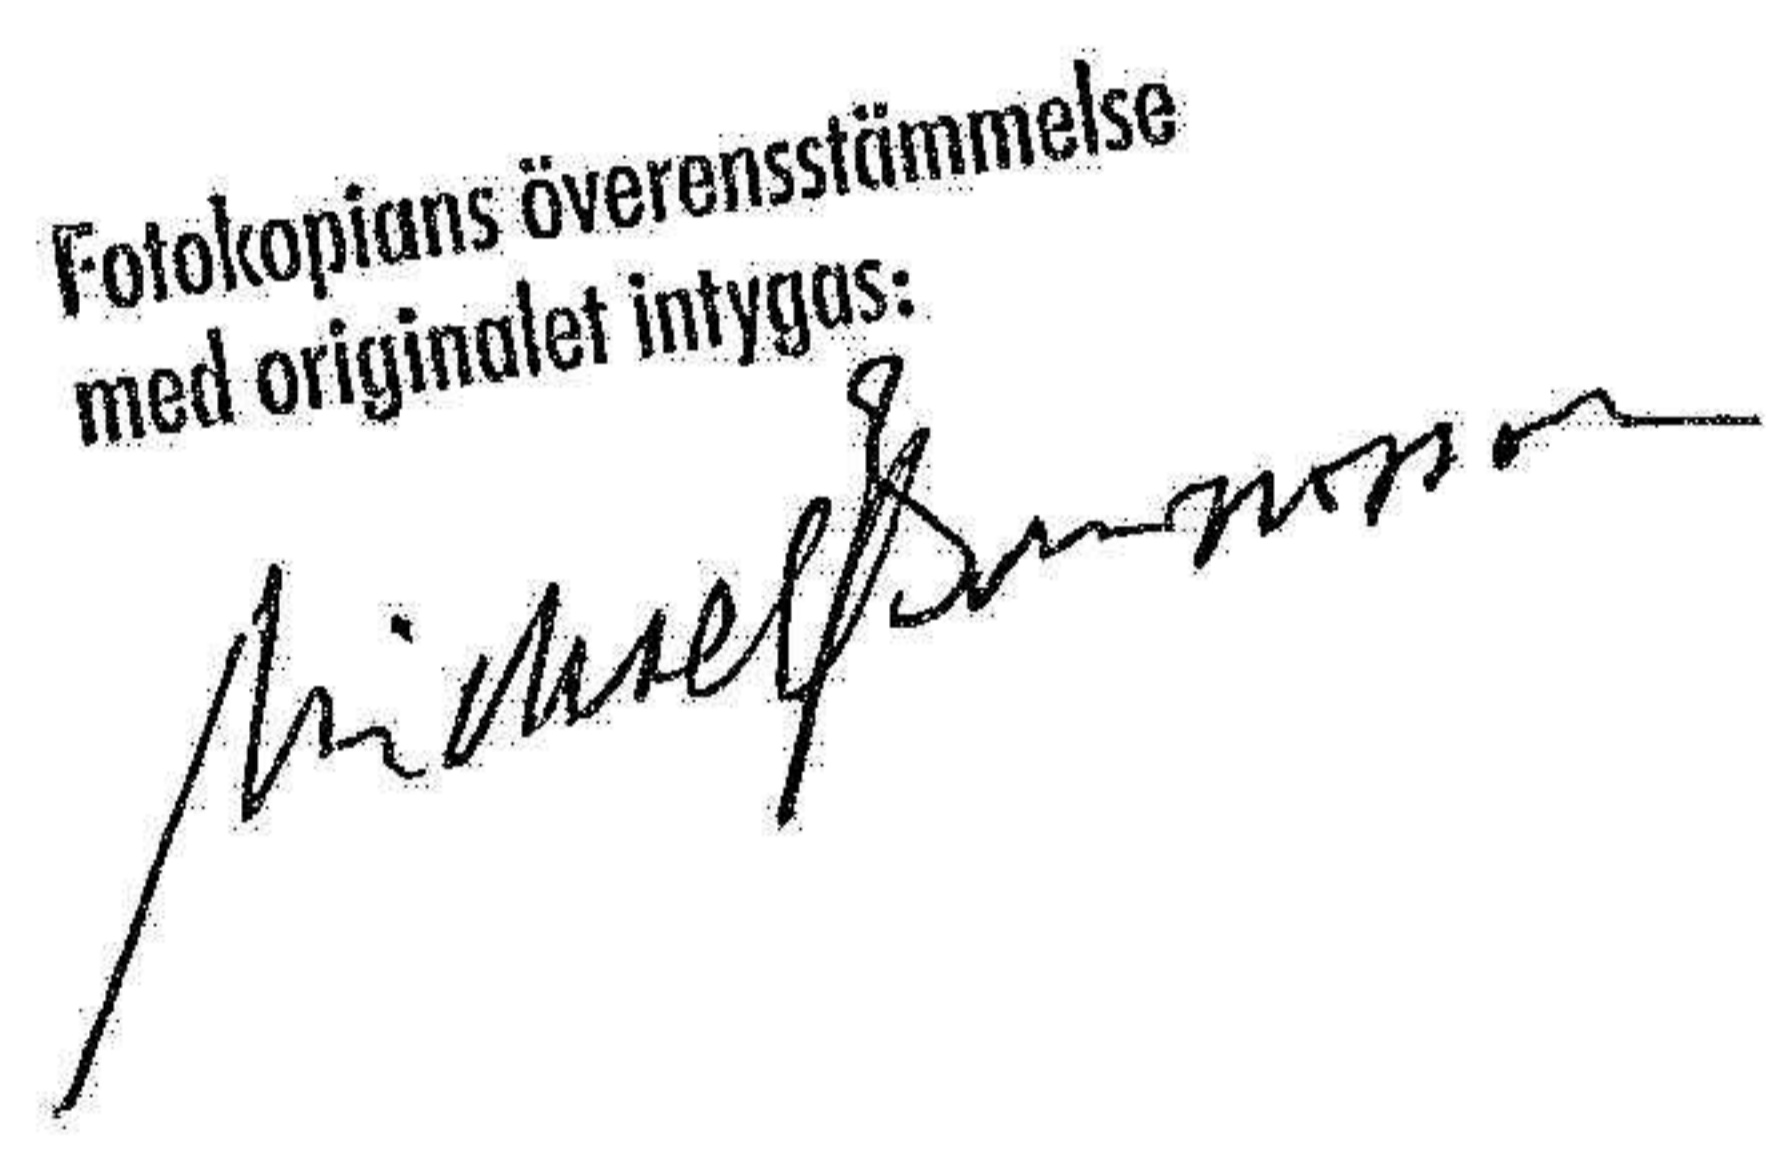 Fotokopians överensstämmelse
med originalet intygas:
Michael